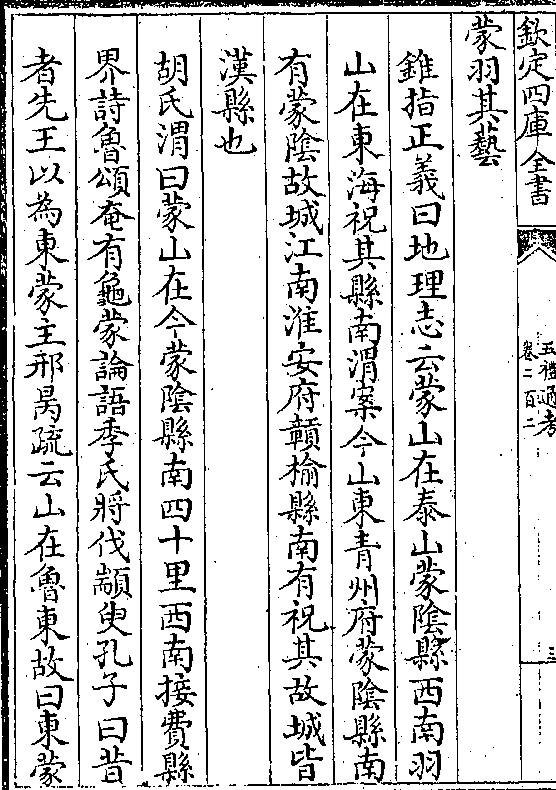 欽定四庫全書
五禮通考
卷二百二
三
蒙羽其藝
錐指正義曰地理志云蒙山在泰山蒙陰縣西南羽
山在東海祝其縣南渭案今山東青州府蒙陰縣南
有蒙陰故城江南淮安府贛榆縣南有祝其故城皆
漢縣也
胡氏渭曰蒙山在今蒙陰縣南四十里西南接費縣
界詩魯頌奄有龜蒙論語季氏將伐顓臾孔子曰昔
者先王以為東蒙主邢昺疏云山在魯東故曰東蒙